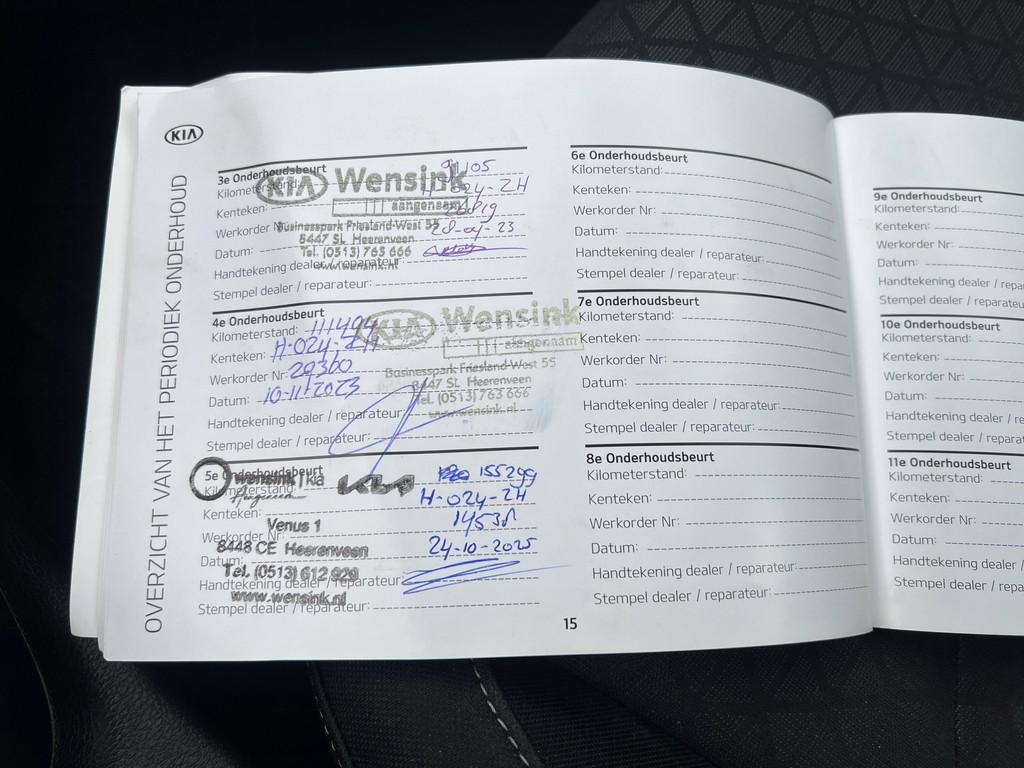 KIA
OVERZICHT VAN HET PERIODIEK ONDERHOUD
3e Onderhoudsbeurt
Kilometerstand: 91105
Kenteken: H-024-ZH
Werkorder Nr:
Datum: 28-04-23
Handtekening dealer / reparateur:
Stempel dealer / reparateur:
KIA Wensink
aangenaam
Businesspark Friesland-West 55
8447 SL Heerenveen
Tel. (0513) 763 666
www.wensink.nl
4e Onderhoudsbeurt
Kilometerstand: 111494
Kenteken: H-024-ZH
Werkorder Nr: 29360
Datum: 10-11-2023
Handtekening dealer / reparateur:
Stempel dealer / reparateur:
KIA Wensink
aangenaam
Businesspark Friesland-West 55
8447 SL Heerenveen
Tel. (0513) 763 666
www.wensink.nl
5e Onderhoudsbeurt
Kilometerstand: 155299
Kenteken: H-024-ZH
Werkorder Nr:
Datum: 24-10-2025
Handtekening dealer / reparateur:
Stempel dealer / reparateur:
wensink | kia
KIA
Venus 1
8448 CE Heerenveen
Tel. (0513) 612 929
www.wensink.nl
6e Onderhoudsbeurt
Kilometerstand:
Kenteken:
Werkorder Nr:
Datum:
Handtekening dealer / reparateur:
Stempel dealer / reparateur:
7e Onderhoudsbeurt
Kilometerstand:
Kenteken:
Werkorder Nr:
Datum:
Handtekening dealer / reparateur:
Stempel dealer / reparateur:
8e Onderhoudsbeurt
Kilometerstand:
Kenteken:
Werkorder Nr:
Datum:
Handtekening dealer / reparateur:
Stempel dealer / reparateur:
15
9e Onderhoudsbeurt
Kilometerstand:
Kenteken:
Werkorder Nr:
Datum:
Handtekening dealer / repa
Stempel dealer / reparateu
10e Onderhoudsbeurt
Kilometerstand:
Kenteken:
Werkorder Nr:
Datum:
Handtekening dealer / re
Stempel dealer / reparat
11e Onderhoudsbeurt
Kilometerstand:
Kenteken:
Werkorder Nr:
Datum:
Handtekening dealer /
Stempel dealer / repa